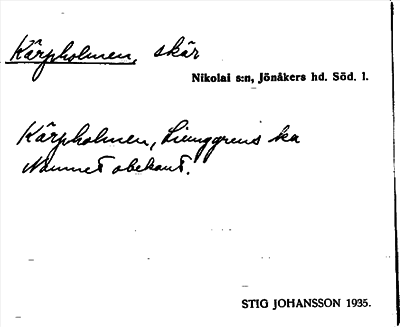 Kärpholmen, skär
Nikolai s:n, Jönåkers hd. Söd. l.
Kärpholmen, Ljunggrens ka
Namnet obekant.
STIG JOHANSSON 1935.